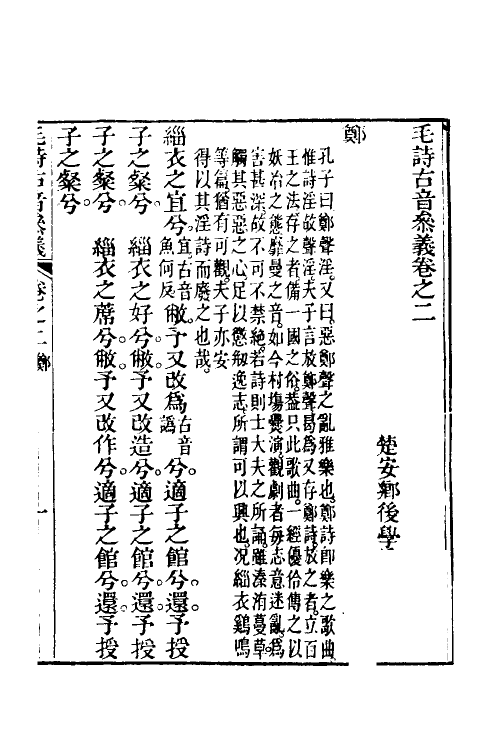 毛詩古音參義卷之二
楚安鄉後學
鄭
孔子曰鄭聲淫又曰惡鄭聲之亂雅樂也鄭詩卽樂之歌曲
惟詩淫故聲淫夫子言放鄭聲曷爲又存鄭詩放之者立百
王之法存之者備一國之俗葢只此歌曲一經優伶傳之以
妖冶之態靡曼之音如今村塲㸑演觀劇者每志意迷亂爲
害甚深故不可不禁絶若詩則士大夫之所誦雖溱洧蔓草
觸其惡惡之心足以懲剏逸志所謂可以興也况緇衣鷄鳴
等篇猶有可觀夫子亦安
得以其淫詩而廢之也哉
緇衣之宜兮宜古音魚何反敝予又改爲古音譌兮適子之館兮還予授
子之粲兮 緇衣之好兮敝予又改造兮適子之館兮還予授
子之粲兮 緇衣之蓆兮敝予又改作兮適子之館兮還予授
子之粲兮
毛詩古音參義 卷之二 鄭 一